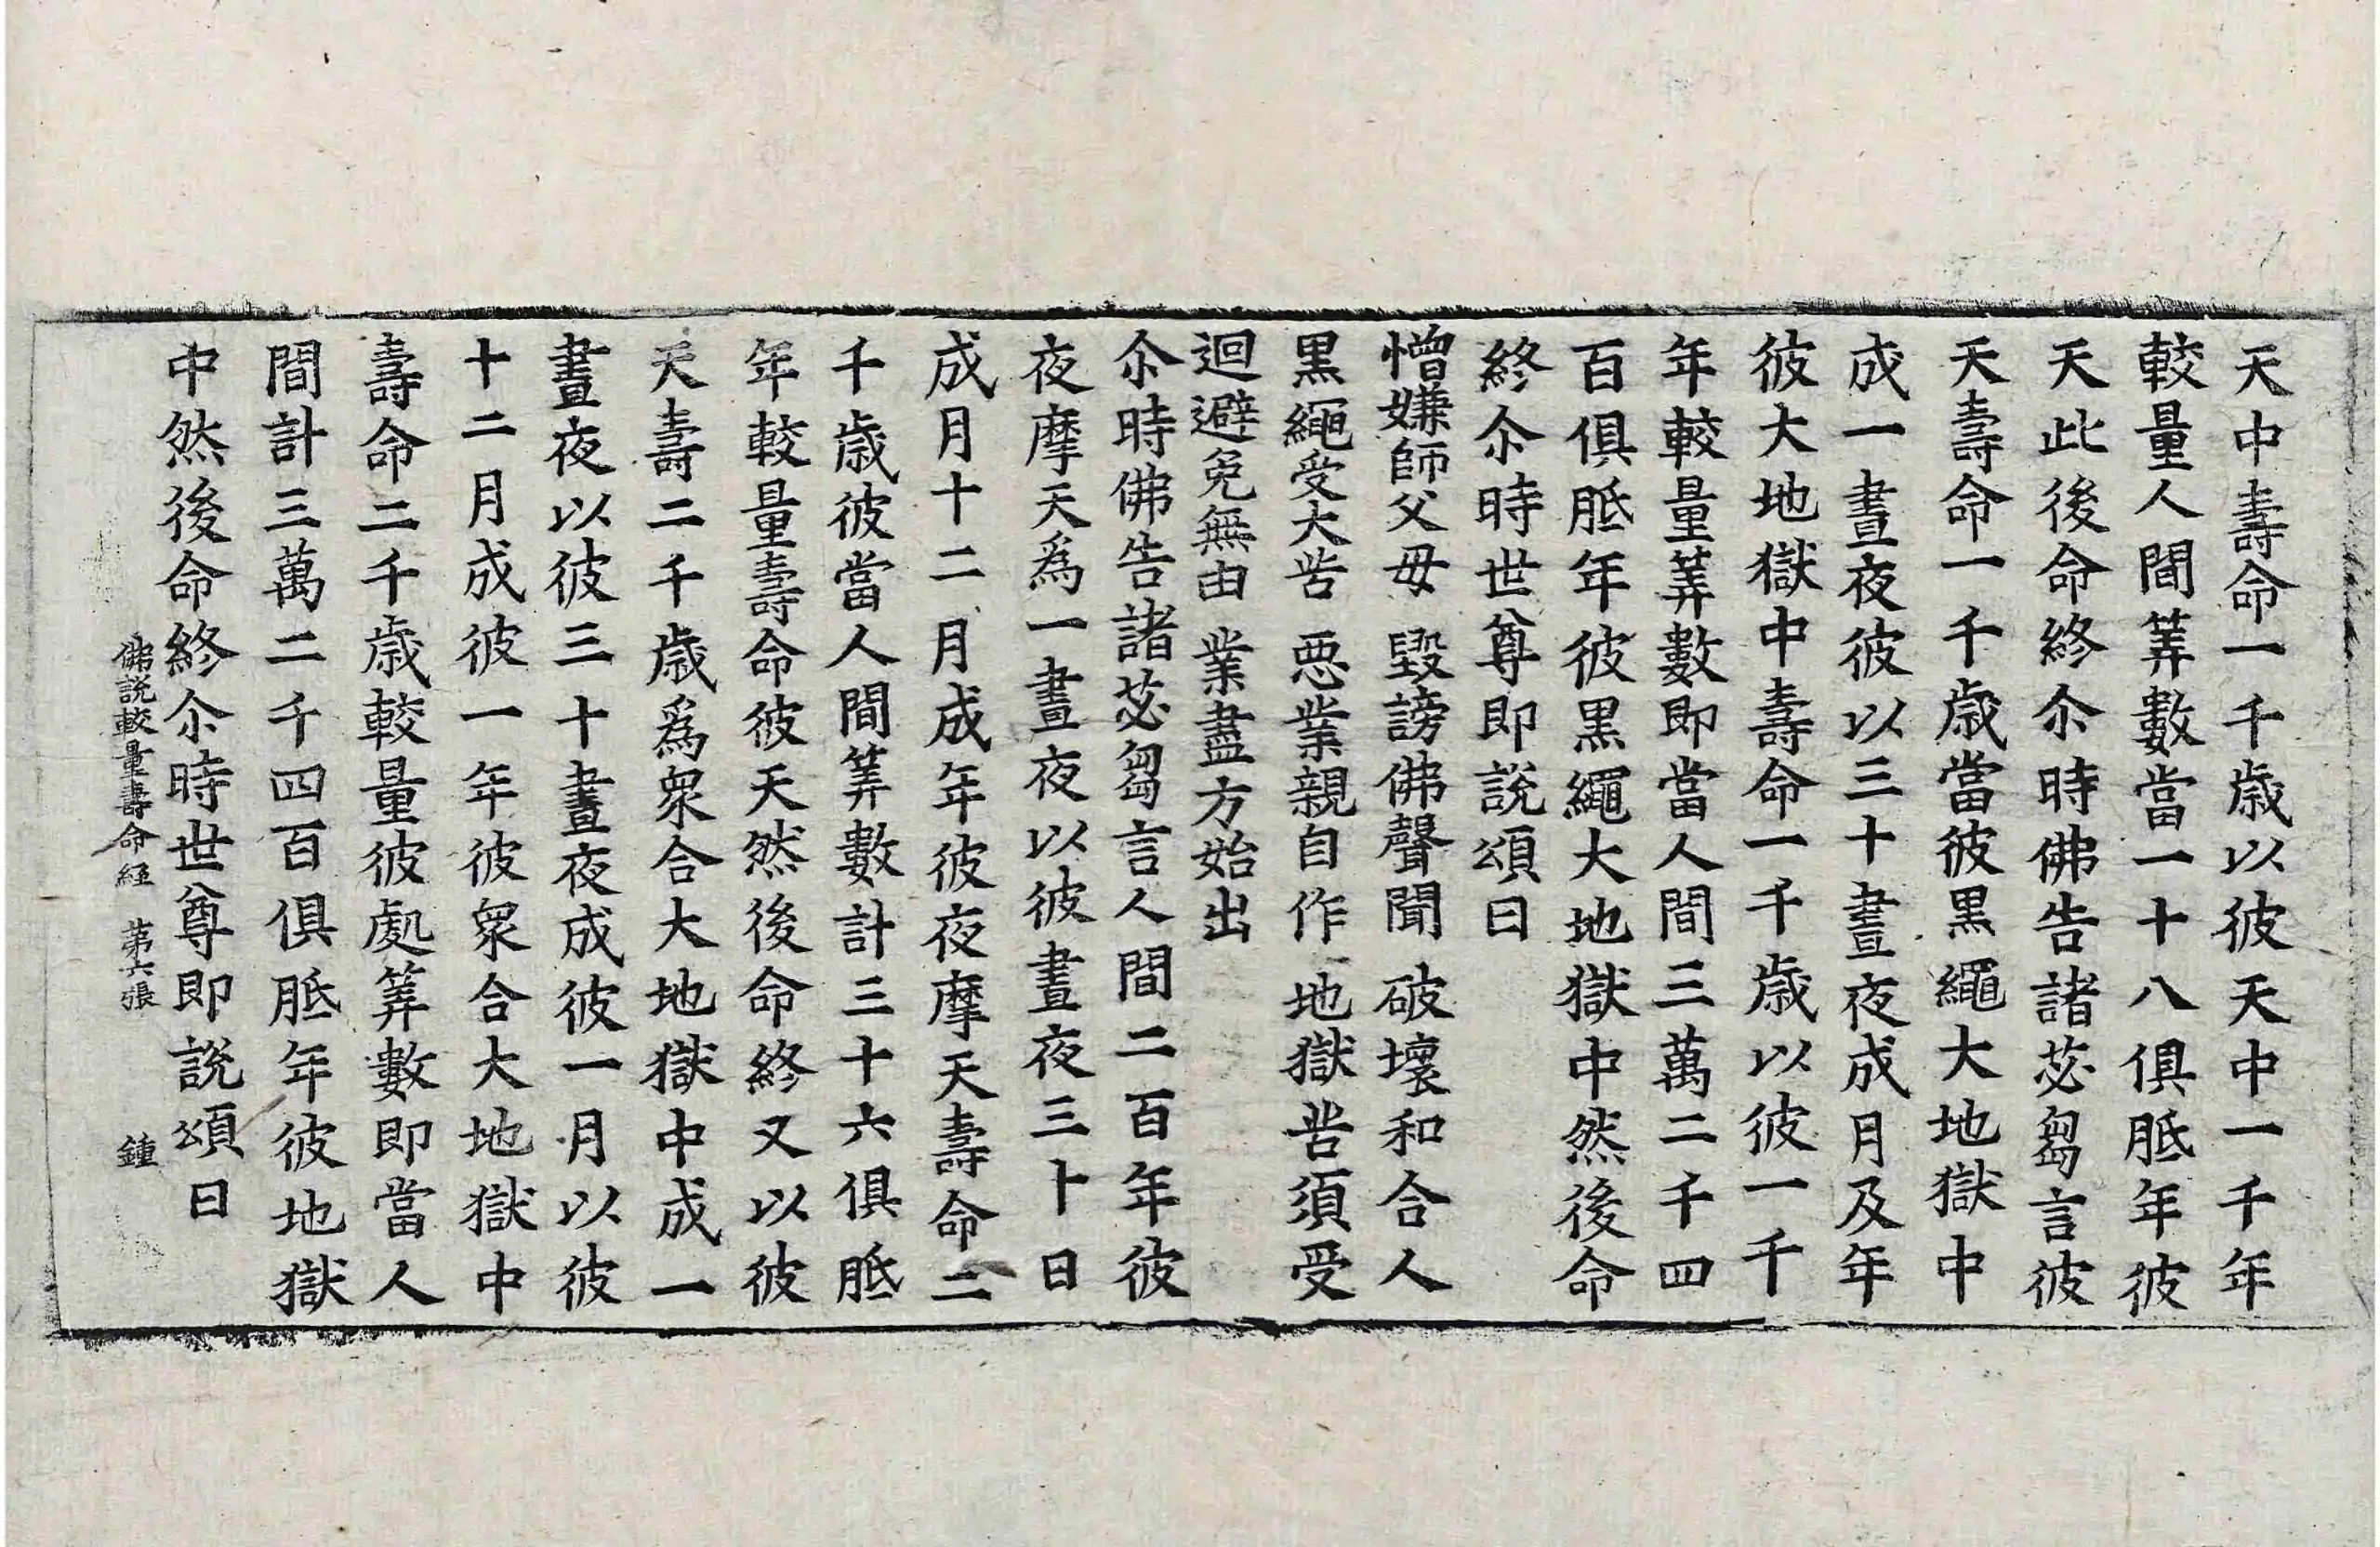 天中壽命一千歲以彼天中一千年
較量人間筭數當一十八俱胝年彼
天此後命終尒時佛告諸苾芻言彼
天壽命一千歲當彼黒繩大地獄中
成一晝夜彼以三十晝夜成月及年
彼大地獄中壽命一千歲以彼一千
年較量筭數即當人間三萬二千四
百俱胝年彼黒繩大地獄中然後命
終尒時世尊即說頌曰
憎嫌師父毋　毀謗佛聲聞　破壞和合人
黒繩受大苦　惡業親自作　地獄苦須受
迴避免無由　業盡方始出
尒時佛告諸苾芻言人間二百年彼
夜摩天爲一晝夜以彼晝夜三十日
成月十二月成年彼夜摩天壽命二
千歲彼當人間筭數計三十六俱胝
年較量壽命彼天然後命終又以彼
天壽二千歲爲衆合大地獄中成一
晝夜以彼三十晝夜成彼一月以彼
十二月成彼一年彼衆合大地獄中
壽命二千歲較量彼處筭數即當人
間計三萬二千四百俱胝年彼地獄
中然後命終尒時世尊即說頌曰
佛說較量壽命經　第六張　鍾